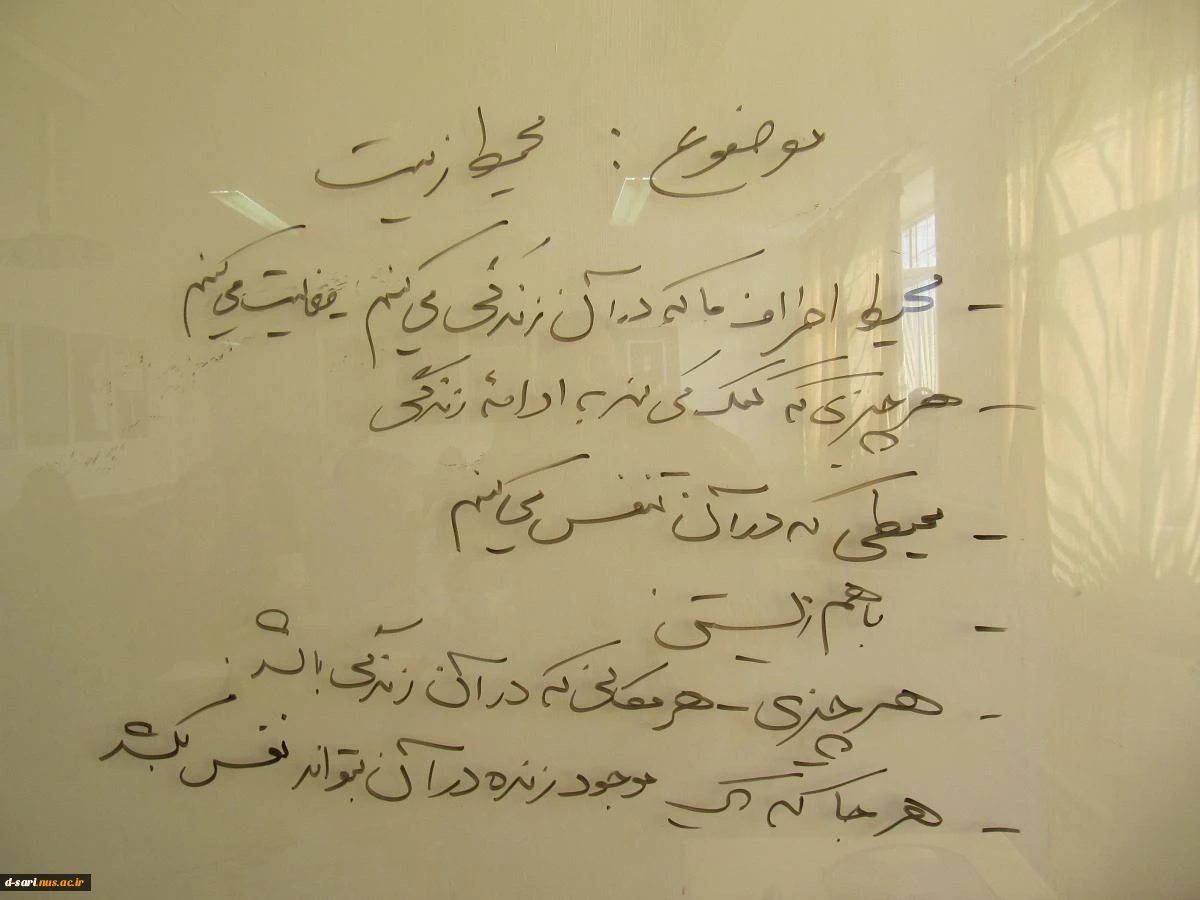 موضوع : محیط زیست
- محیط اطراف ما که در آن زندگی می کنیم فعالیت می کنیم
- هر چیزی که کمک می کنه به ادامهٔ زندگی
- محیطی که در آن تنفس می کنیم
- با هم زیستی
- هر چیزی - هر مکانی که در آن زندگی باشد
- هر جا که یک موجود زنده در آن بتواند نفس بکشد
d-sari.nus.ac.ir